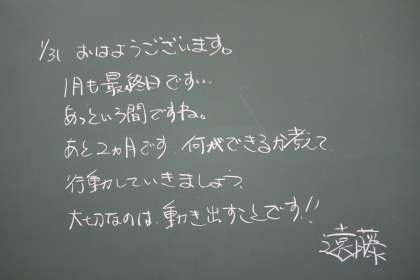 1/31 おはようございます。
1月も最終日です…
あっという間ですね。
あと2ヵ月です.何ができるか考えて
行動していきましょう.
大切なのは、動き出すことです!!
遠藤